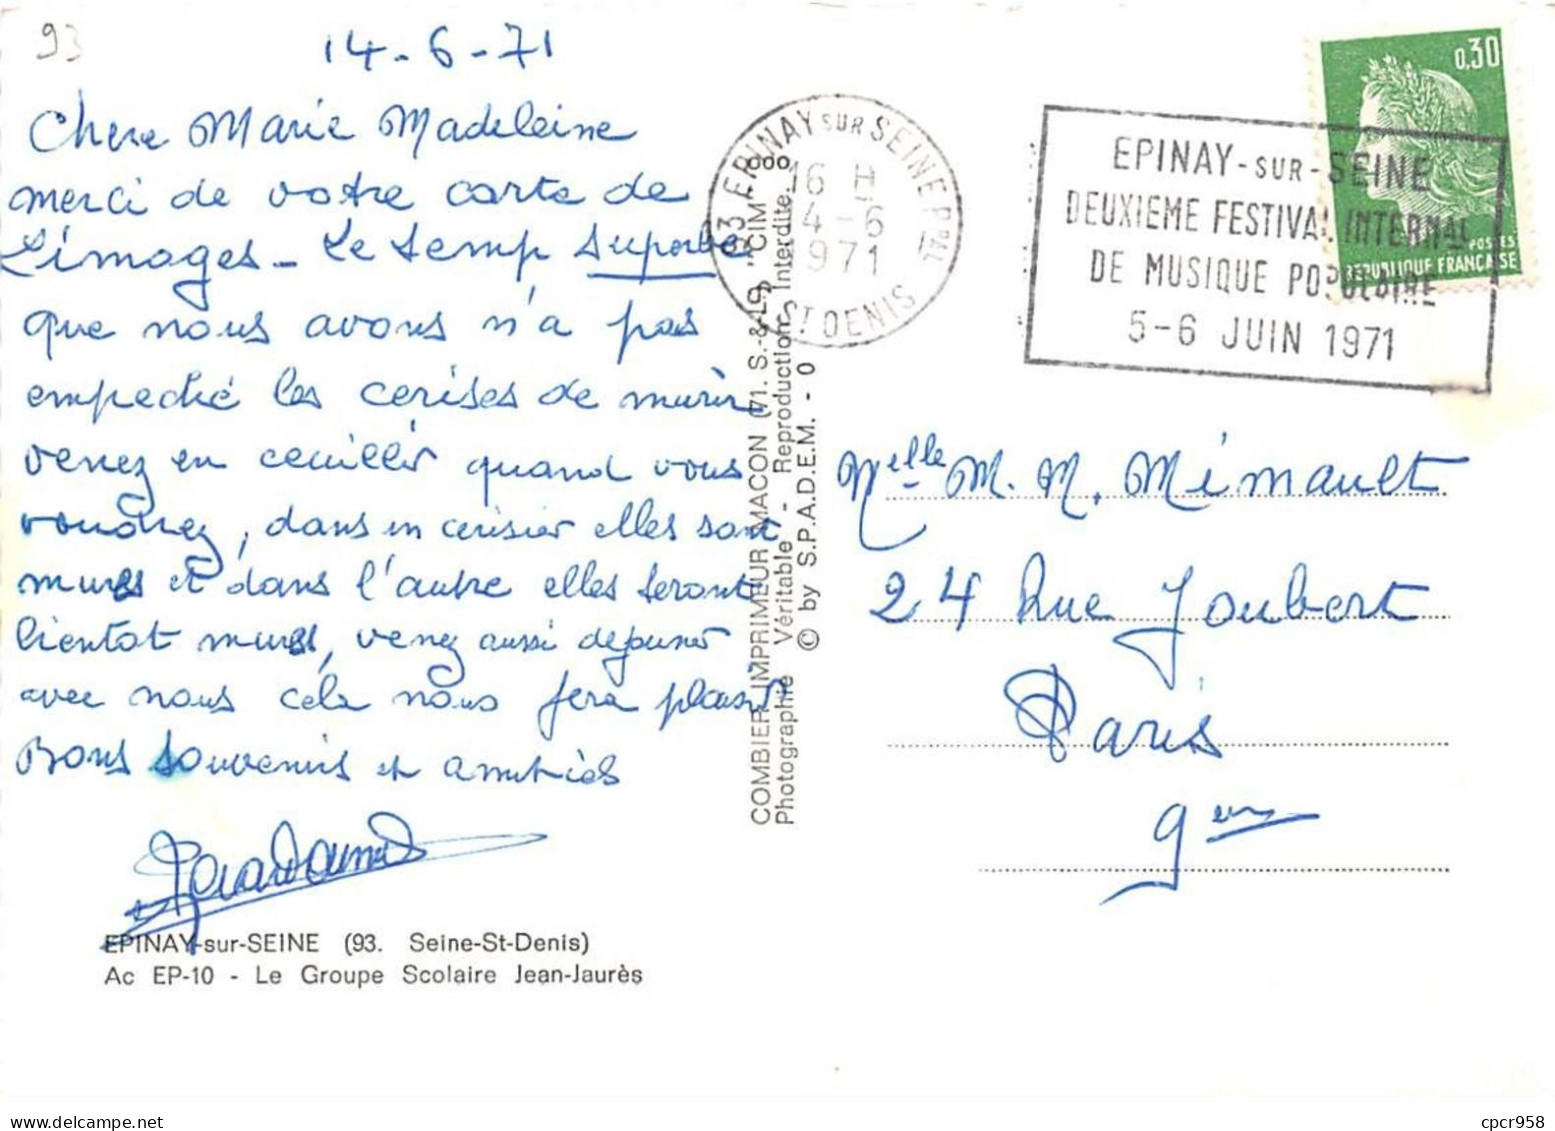 93
14-6-71
Chere Marie Madeleine
merci de votre carte de
Limoges - Le temp superbe
que nous avons n'a pas
empeché les cerises de murir
venez en ceuillir quand vous
voudrez, dans un cerisier elles sont
mures et dans l'autre elles seront
bientot mures, venez aussi dejeuner
avec nous cela nous fera plaisir
Bons souvenirs et amitiés
EPINAY-sur-SEINE (93. Seine-St-Denis)
Ac EP-10 - Le Groupe Scolaire Jean-Jaurès
COMBIER IMPRIMEUR MACON (71. S.-&-L.) "CIM"
Photographie Véritable - Reproduction Interdite
© by S.P.A.D.E.M. - 0
93 EPINAY SUR SEINE PPAL
16 H
14-6
1971
ST DENIS
EPINAY-SUR-SEINE
DEUXIEME FESTIVAL INTERNAL
DE MUSIQUE POPULAIRE
5-6 JUIN 1971
0,30
POSTES
REPUBLIQUE FRANÇAISE
Melle M. M. Mémault
24 Rue Joubert
Paris
9eme
cpcr958